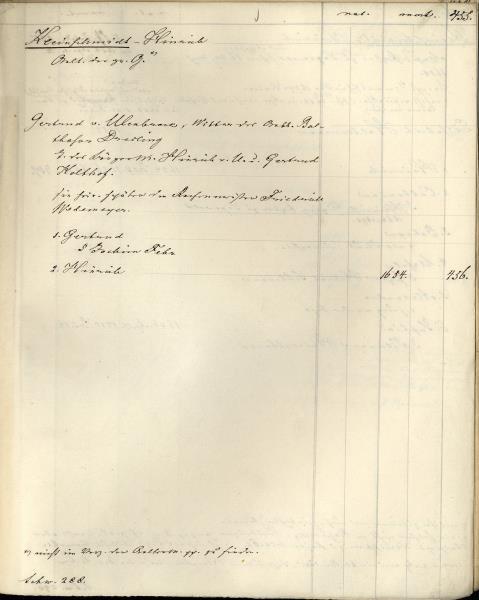 nat. mort. 455.
Kleinschmidt - Hinrich
Aelt. der gr. G. *)
Gertrud v. Ulenbrock, Witwe des Aelt. Bal-
thasar Dreling
T. des Bürgerm. Hinrich v. U. u. Gertrud
Holthof.
sie hei. später den Friedrich
Wedemeyer.
1. Gertrud
Jochim Fehr
2. Hinrich 1654. 456.
*) nicht im Verz. der Aelterm. pp. zu finden.
Schw. 288.